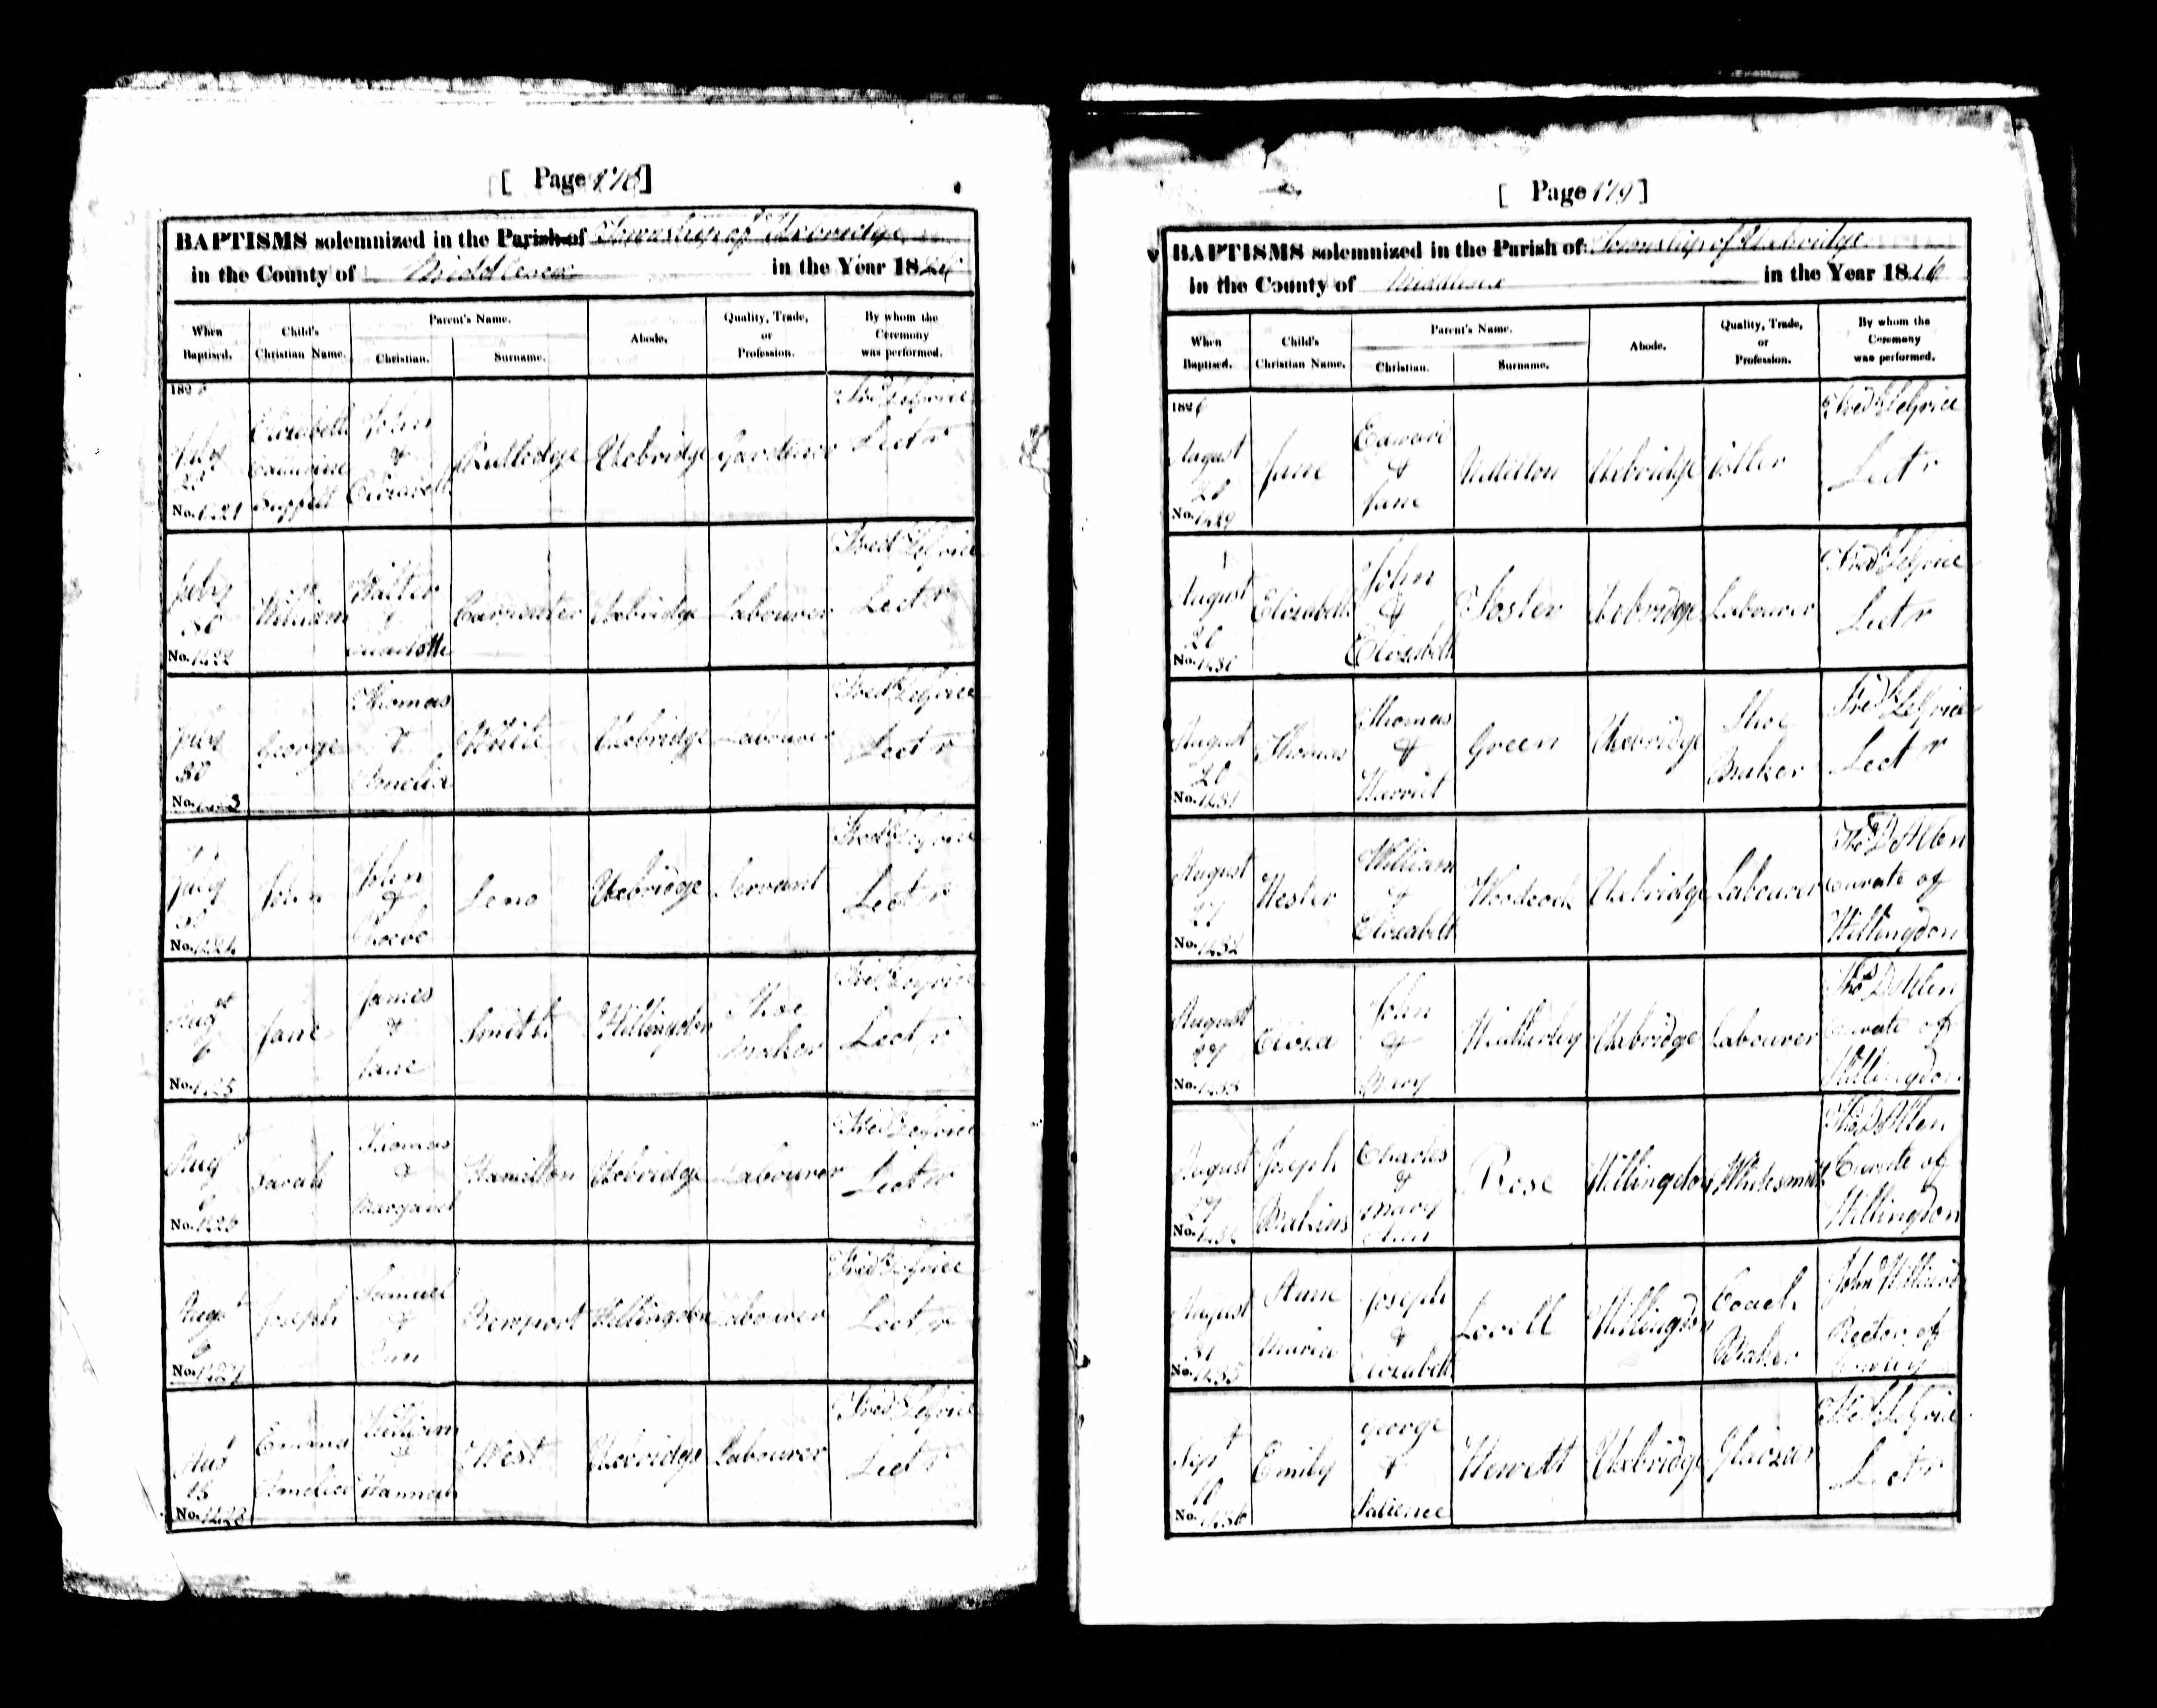 [ Page 178 ]
BAPTISMS solemnized in the Parish of Township of Uxbridge
in the County of Middlesex in the Year 1826
When Baptised. Child's Christian Name. Parent's Name. Christian. Surname. Abode. Quality, Trade, or Profession. By whom the Ceremony was performed.
182
July
No. 1421
Elizabeth
John
&
Elizabeth
Rutledge
Uxbridge
Gardener
Fredk LeGrice
Lectr
July
30
No. 1422
William
Walter
&
Charlotte
Carpenter
Uxbridge
Labourer
Fredk LeGrice
Lectr
July
30
No. 1423
George
Thomas
&
Amelia
White
Uxbridge
Labourer
Fredk LeGrice
Lectr
July
30
No. 1424
John
John
&
Phoebe
Leno
Uxbridge
Servant
Fredk LeGrice
Lectr
Augst
6
No. 1425
Jane
James
&
Jane
Smith
Hillingdon
Shoe
Maker
Fredk LeGrice
Lectr
Augst
6
No. 1426
Sarah
Thomas
&
Margaret
Hamilton
Uxbridge
Labourer
Fredk LeGrice
Lectr
Augst
6
No. 1427
Joseph
Samuel
&
Ann
Hillingdon
Labourer
Fredk LeGrice
Lectr
Aug
13
No. 1428
Emma
Amelia
William
&
Hannah
West
Uxbridge
Labourer
Fredk LeGrice
Lectr
[ Page 179 ]
BAPTISMS solemnized in the Parish of Township of Uxbridge
in the County of Middlesex in the Year 1826
When Baptised. Child's Christian Name. Parent's Name. Christian. Surname. Abode. Quality, Trade, or Profession. By whom the Ceremony was performed.
1826
August
20
No. 1429
Jane
Edward
&
Jane
Uxbridge
Fredk LeGrice
Lectr
August
20
No. 1430
Elizabeth
John
&
Elizabeth
Foster
Uxbridge
Labourer
Fredk LeGrice
Lectr
August
20
No. 1431
Thomas
Thomas
&
Harriet
Green
Uxbridge
Shoe
Maker
Fredk LeGrice
Lectr
August
27
No. 1432
Hester
William
&
Elizabeth
Woodcock
Uxbridge
Labourer
Thos D Allen
Curate of
Hillingdon
August
27
No. 1433
Eliza
John
&
Mary
Weatherley
Uxbridge
Labourer
Thos D Allen
Curate of
Hillingdon
August
27
No. 1434
Joseph
Makins
Charles
&
Mary
Ann
Rose
Hillingdon
Whitesmith
Thos D Allen
Curate of
Hillingdon
August
31
No. 1435
Anne
Maria
Joseph
&
Elizabeth
Lovell
Hillingdon
Coach
Maker
John
Rector of
Cowley
Sept
10
No. 1436
Emily
George
&
Patience
Hewett
Uxbridge
Glazier
LeGrice
Lectr